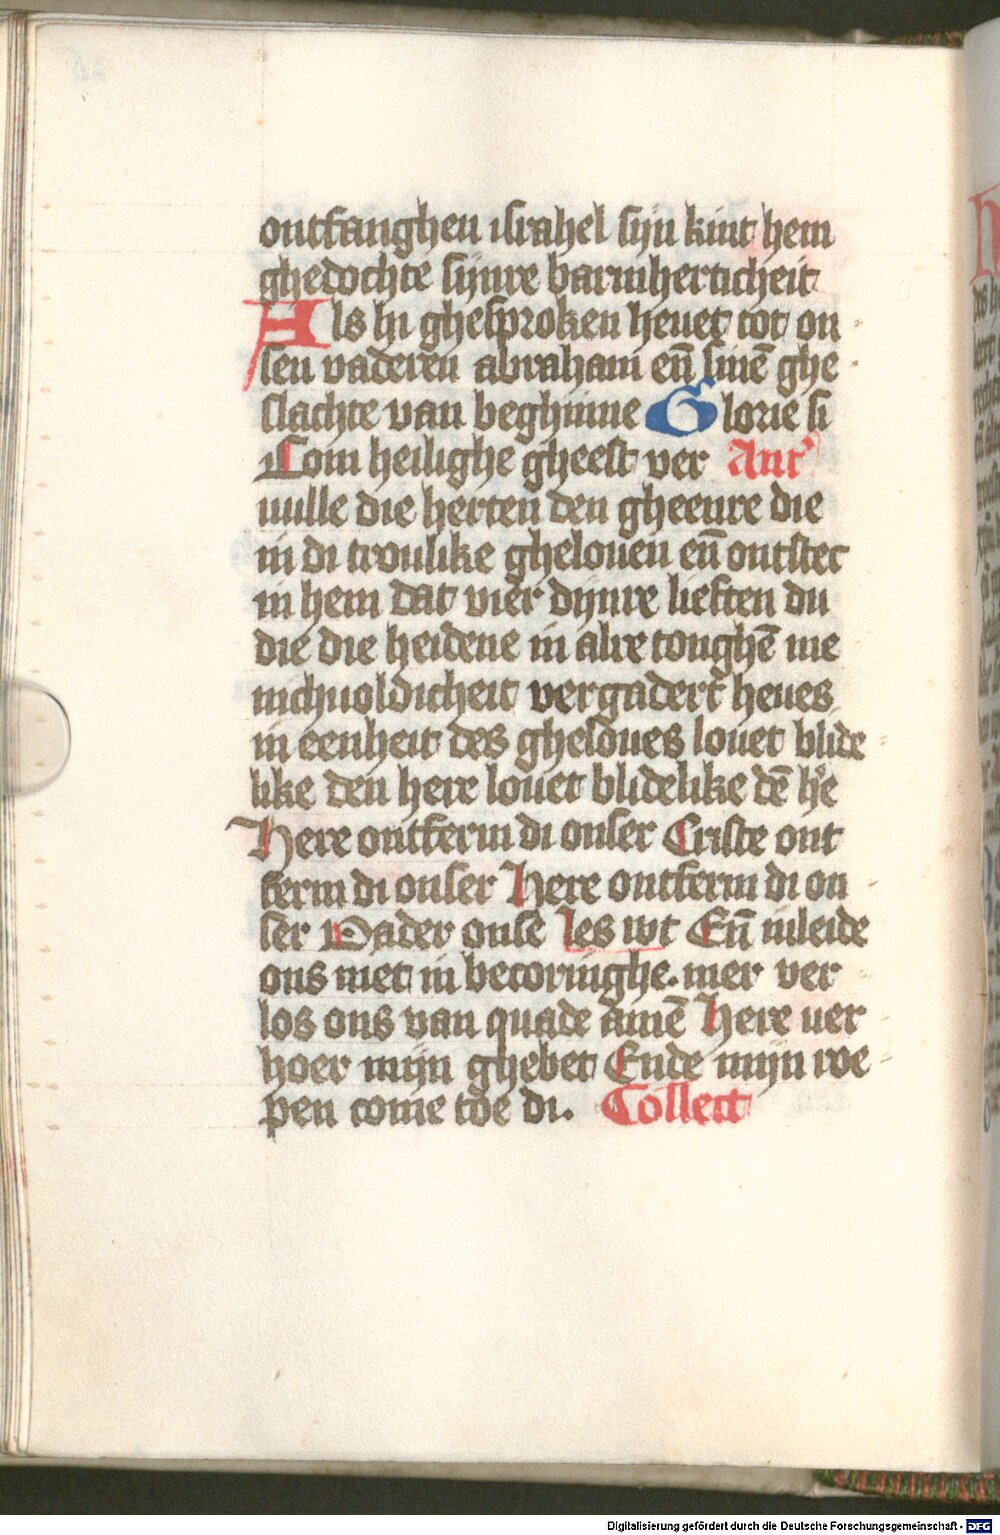 ontfanghen israhel sijn kint hem
ghedochte sijnre barmherticheit
Als hi ghesproken heuet tot on
sen vaderen abraham eñ sinē ghe
slachte van beghinne Glorie si
Com heilighe gheest ver Ant'
uulle die herten den gheenre die
in di trouslike ghelouen eñ ontstec
in hem dat vier dijnre lieften du
die die heidene in alre tonghē me
nichuoldicheit vergadert heues
in eenheit des gheloues louet blide
like den here louet blidelike dē h'e
Here ontferm di onser Criste ont
ferm di onser Here ontferm di on
ser Vader onse les wt Eñ inleide
ons niet in becoringhe. mer ver
los ons van quade amē Here uer
hoer mijn ghebet Ende mijn roe
pen come toe di. Collect
Digitalisierung gefördert durch die Deutsche Forschungsgemeinschaft - DFG